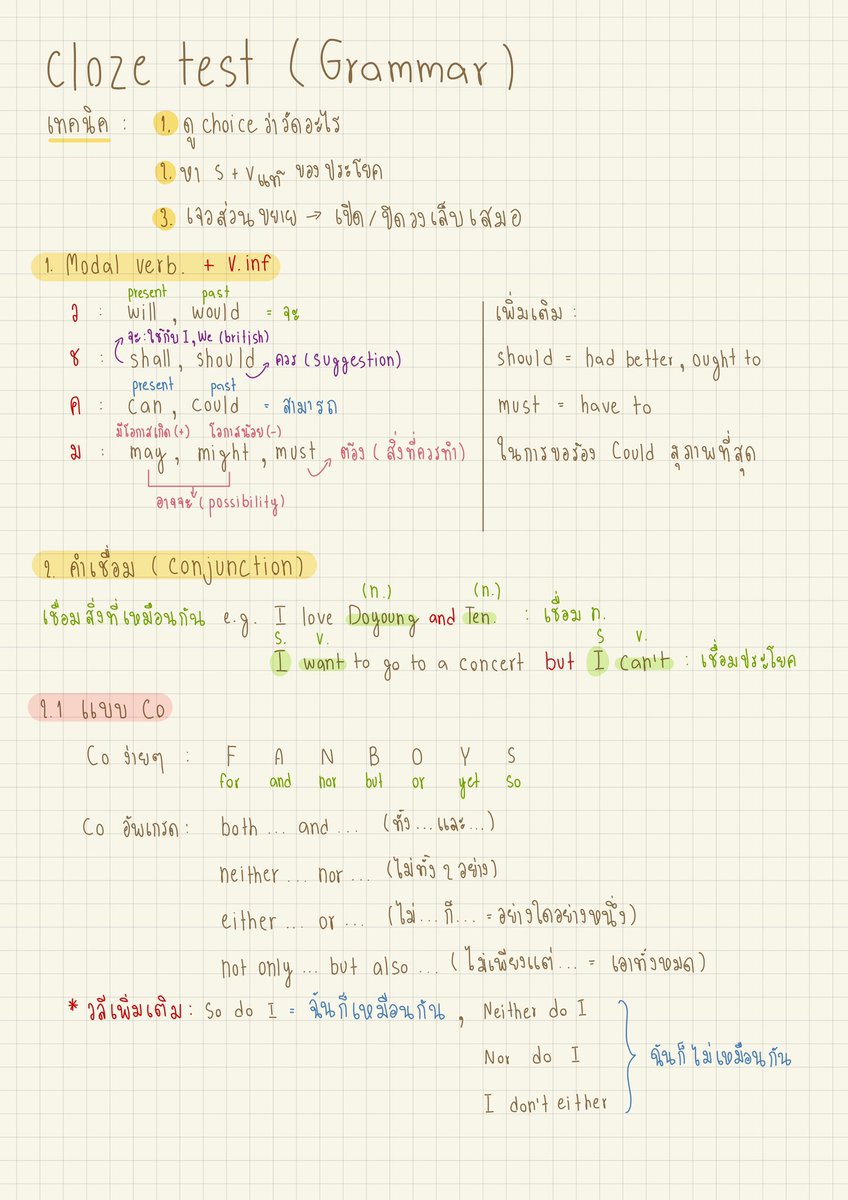 cloze test (Grammar)
เทคนิค : 1. ดู choice ว่าวัดอะไร
2. หา S + V แท้ ของประโยค
3. เจอส่วนขยาย → เปิด/ปิดวงเล็บเสมอ
1. Modal verb. + V.inf
present past
ว : will , would = จะ
เพิ่มเติม :
จะ:ใช้กับ I, We (british)
ช : shall, should ควร (suggestion)
should = had better, ought to
present past
ค : can, could = สามารถ
must = have to
มีโอกาสเกิด(+) โอกาสน้อย(-)
ม : may, might, must ต้อง (สิ่งที่ควรทำ)
ในการขอร้อง Could สุภาพที่สุด
อาจจะ (possibility)
2. คำเชื่อม (conjunction)
(n.) (n.)
เชื่อมสิ่งที่เหมือนกัน e.g. I love Doyoung and Ten. : เชื่อม n.
S. V. S V.
I want to go to a concert but I can't : เชื่อมประโยค
2.1 แบบ Co
Co ง่ายๆ : F A N B O Y S
for and nor but or yet so
Co อัพเกรด: both ... and ... (ทั้ง...และ...)
neither ... nor ... (ไม่ทั้ง 2 อย่าง)
either ... or ... (ไม่...ก็... = อย่างใดอย่างหนึ่ง)
not only ... but also ... (ไม่เพียงแต่... = เอาทั้งหมด)
* วลีเพิ่มเติม: So do I = ฉันก็เหมือนกัน , Neither do I
Nor do I
ฉันก็ไม่เหมือนกัน
I don't either